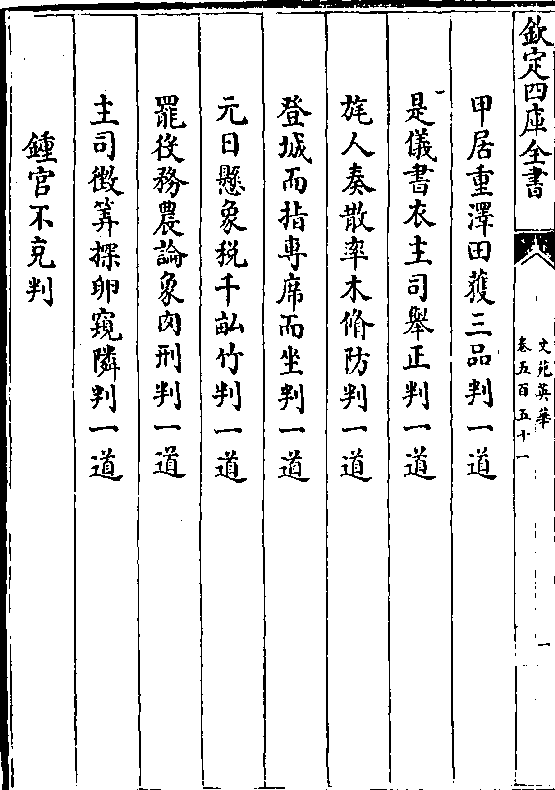 欽定四庫全書
文苑英華
卷五百五十一
一
甲居重澤田蒦三品判一道
是儀書衣主司舉正判一道
旄人奏散率木脩防判一道
登城而指專席而坐判一道
元日懸象税千畝竹判一道
罷役務農論象肉刑判一道
主司徴筭探卵窺隣判一道
鍾官不克判